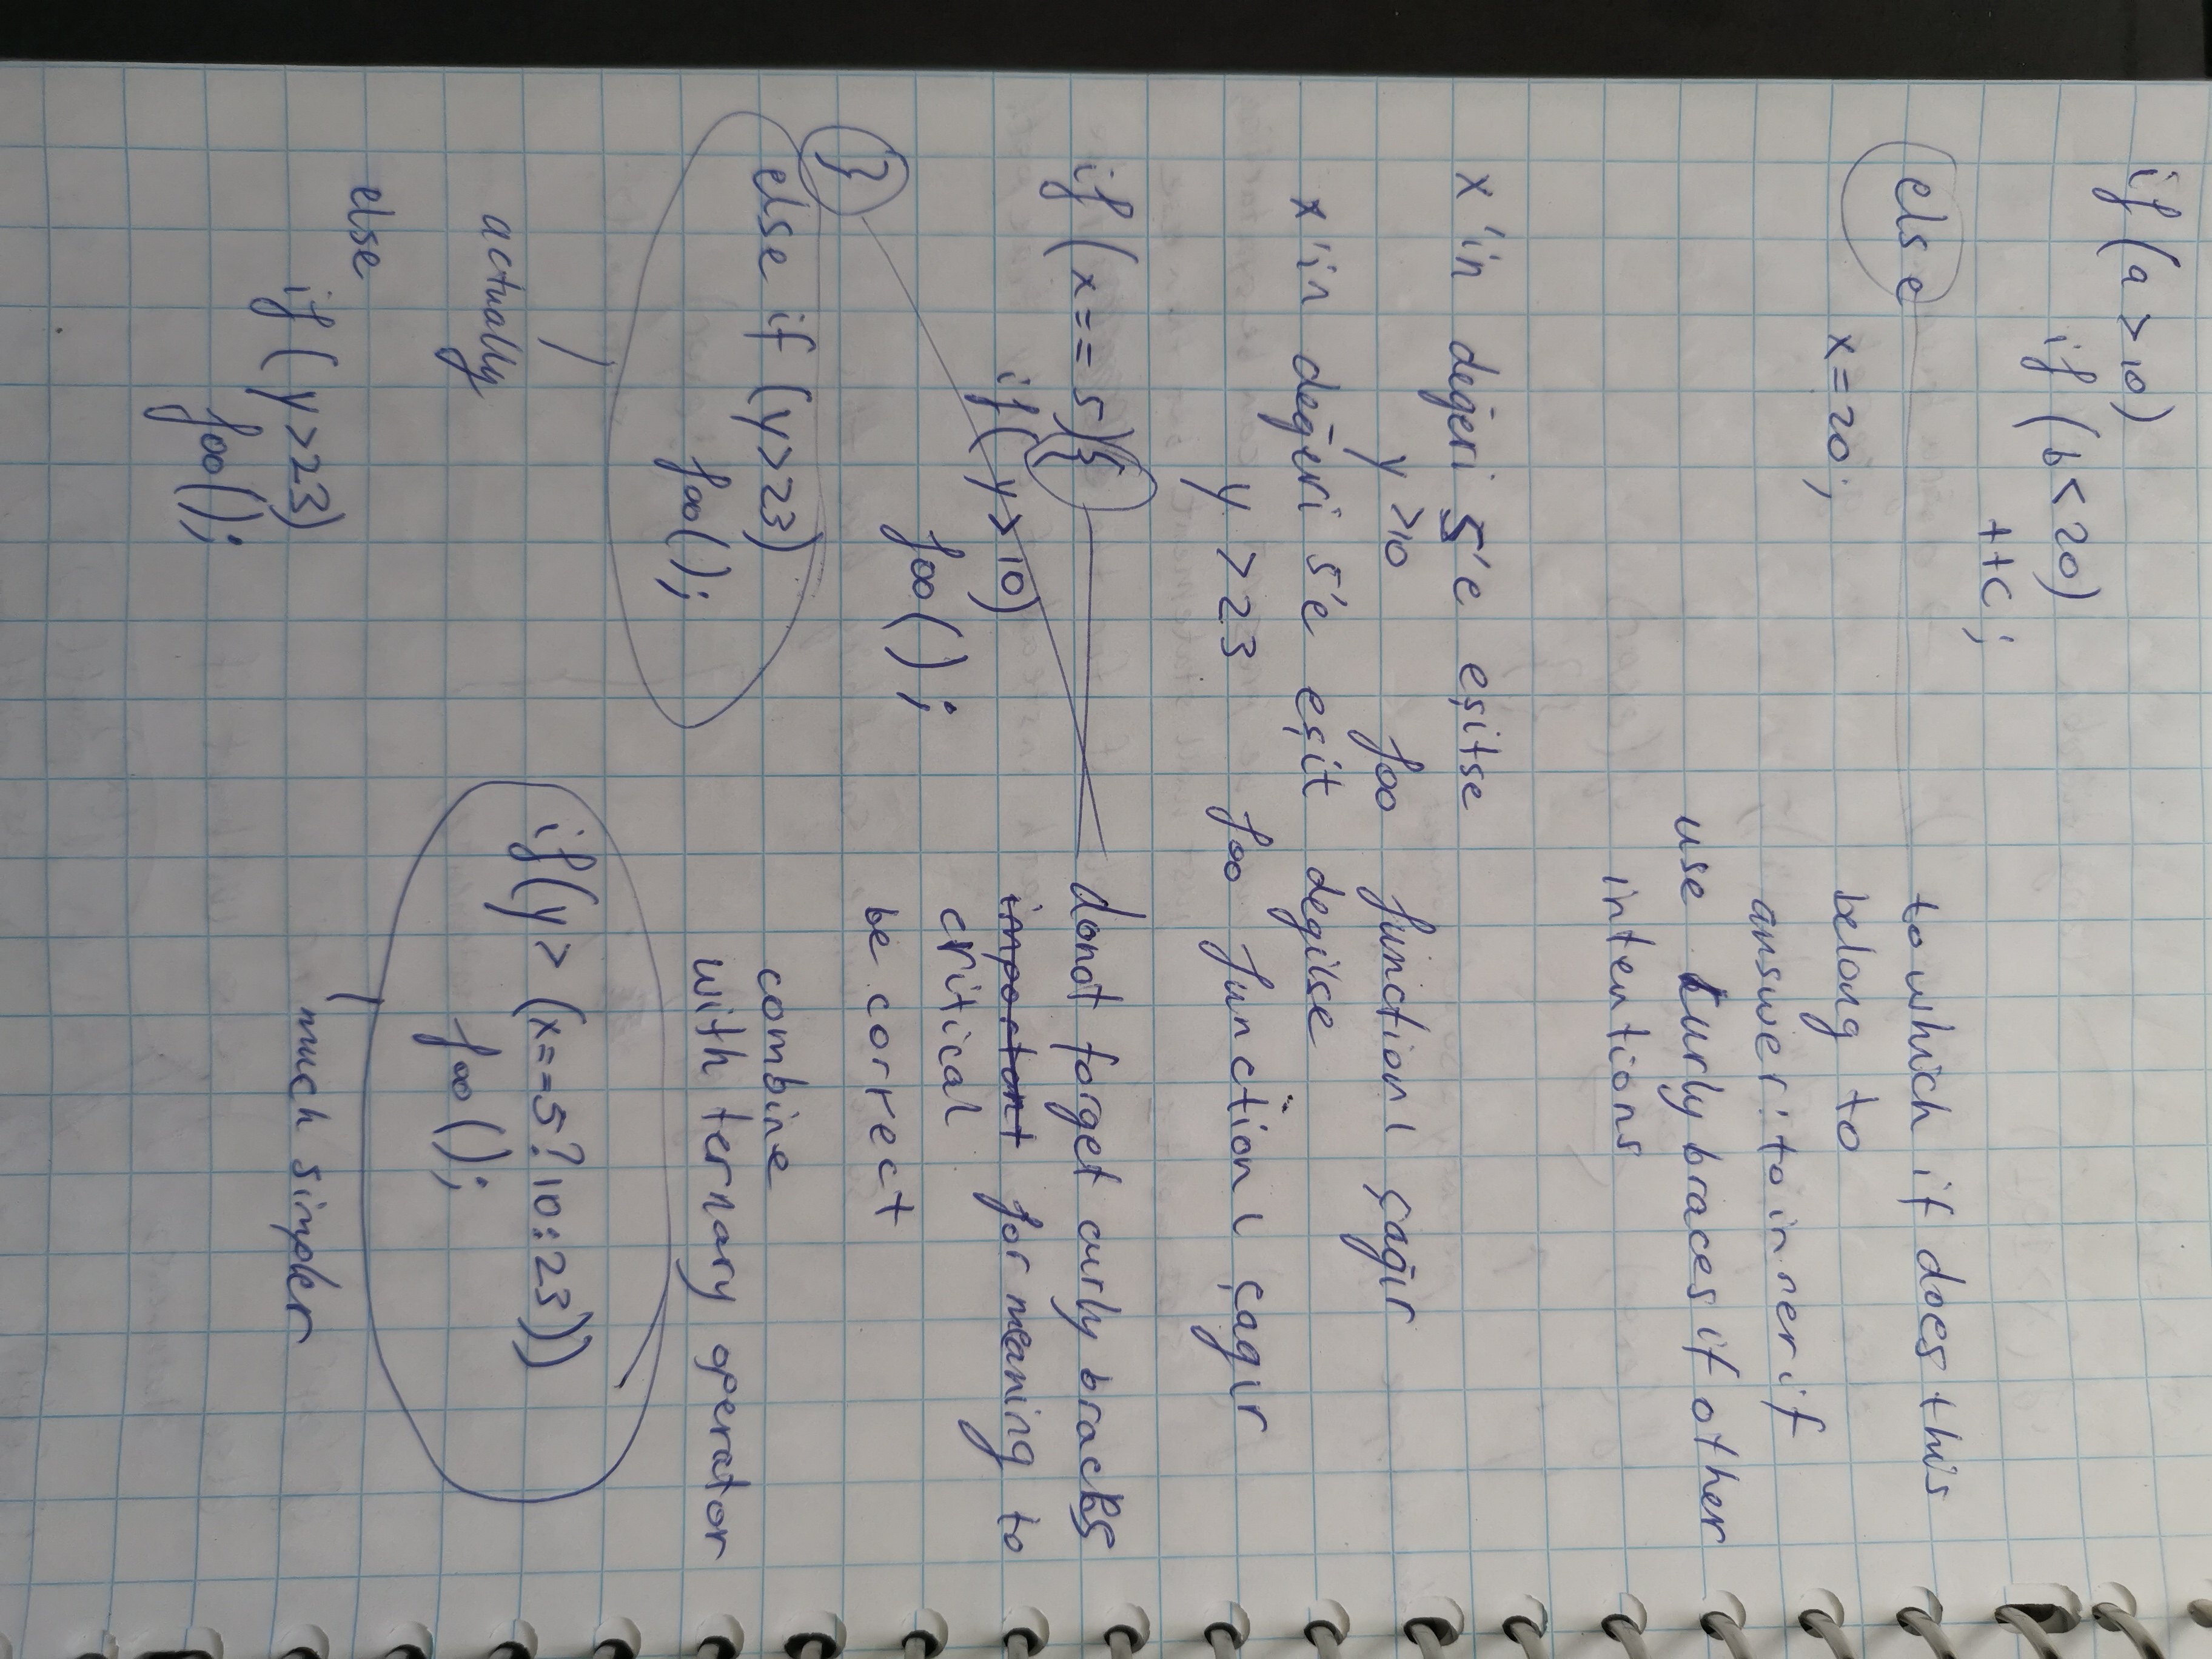 if (a > 10)
if (b < 20)
++c ;
else
x = 20 ;
to which if does this
belong to
answer : to inner if
use curly braces if other
intentions
x 'in değeri 5'e eşitse
y >10 foo function ı çağır
x 'in değeri 5'e eşit degilse
y > 23 foo function ı çagır
if (x == 5) {
if( y > 10)
foo () ;
}
donot forget curly bracks
important for meaning to
critical
be correct
else if (y>23)
foo();
actually
else
if ( y >23)
foo();
combine
with ternary operator
if(y > (x==5?10:23))
foo ();
much simpler